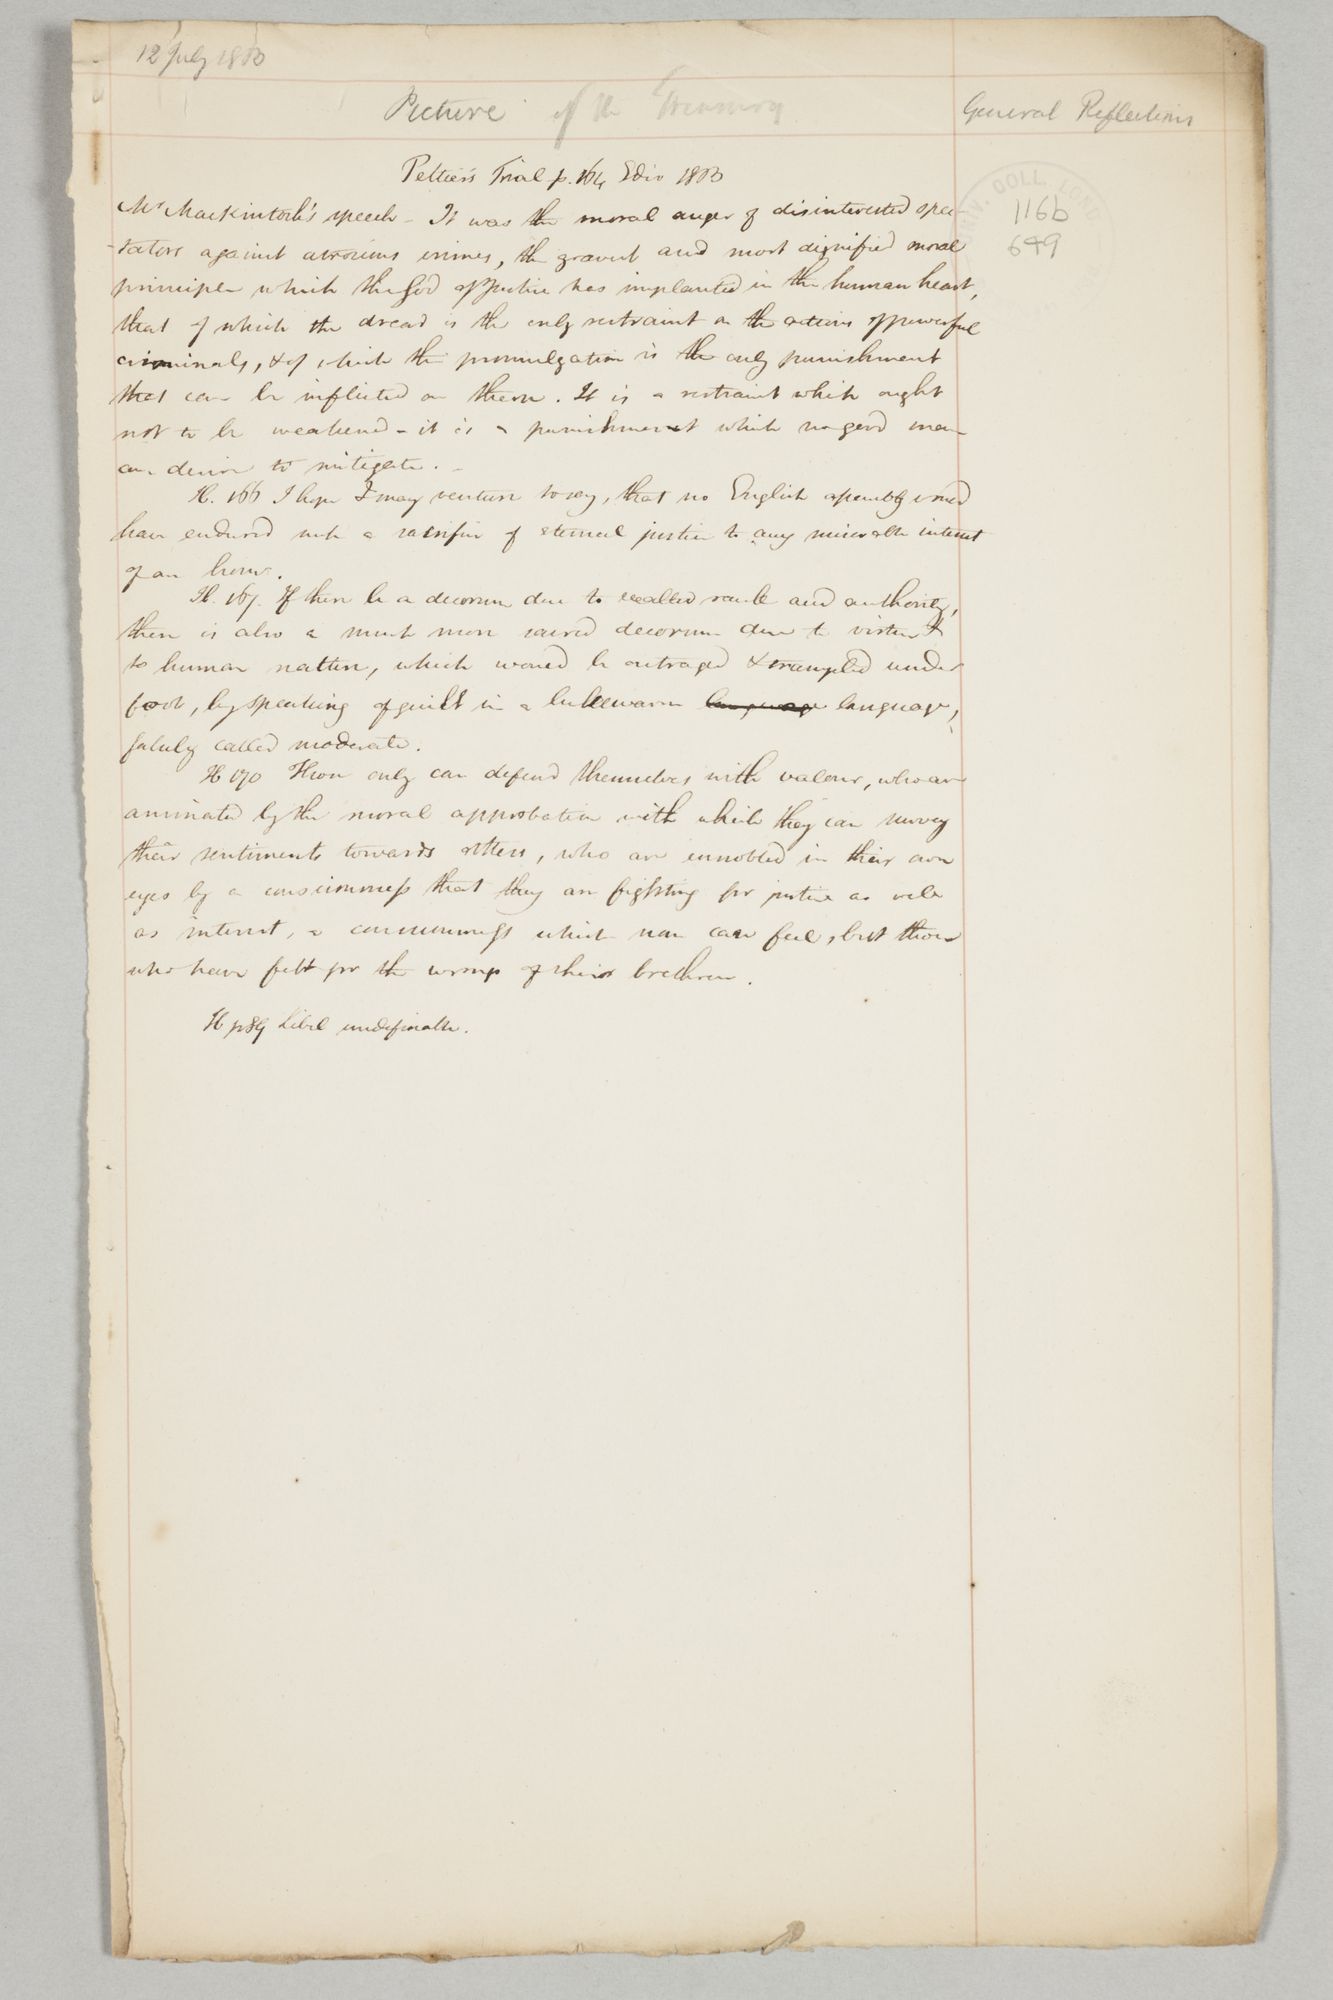 12 July 1803
Picture of the Treasury
General Reflections
UNIV. COLL. LOND.
116b
649
Peltier's Trial p. 164 Edio 1803
Mr Mackintosh's speech - It was the moral anger of disinterested spec-
-tators against atrocious crimes, the gravest and most dignified moral
principle which the God of Justice has implanted in the human heart,
that of which the dread is the only restraint on the actions of powerful
criminals, & of which the promulgation is the only punishment
that can be inflicted on them. It is a restraint which ought
not to be weakened - it is a punishment which no good man
can desire to mitigate. -
Ib. 166 I hope I may venture to say, that no English assembly would
have endured such a sacrifice of eternal justice to any miserable interest
of an hour.
Ib. 167. If there be a decorum due to exalted rank and authority,
there is also a much more sacred decorum due to virtue &
to human nature, which would be outraged & trampled under
foot, by speaking of guilt in a lukewarm language language,
falsely called moderate.
Ib 170 Those only can defend themselves with valour, who are
animated by the moral approbation with which they can survey
their sentiments towards others, who are ennobled in their own
eyes by a consciousness that they are fighting for justice as well
as interest, a consciousness which none can feel, but those
who have felt for the wrongs of their brethren.
Ib p 84 Libel undefinable.